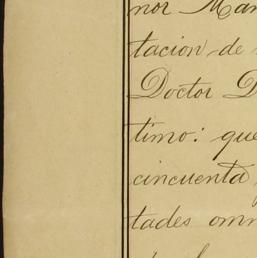 nor Man
tacion de
Doctor D
timo: que
cincuenta
tades omn